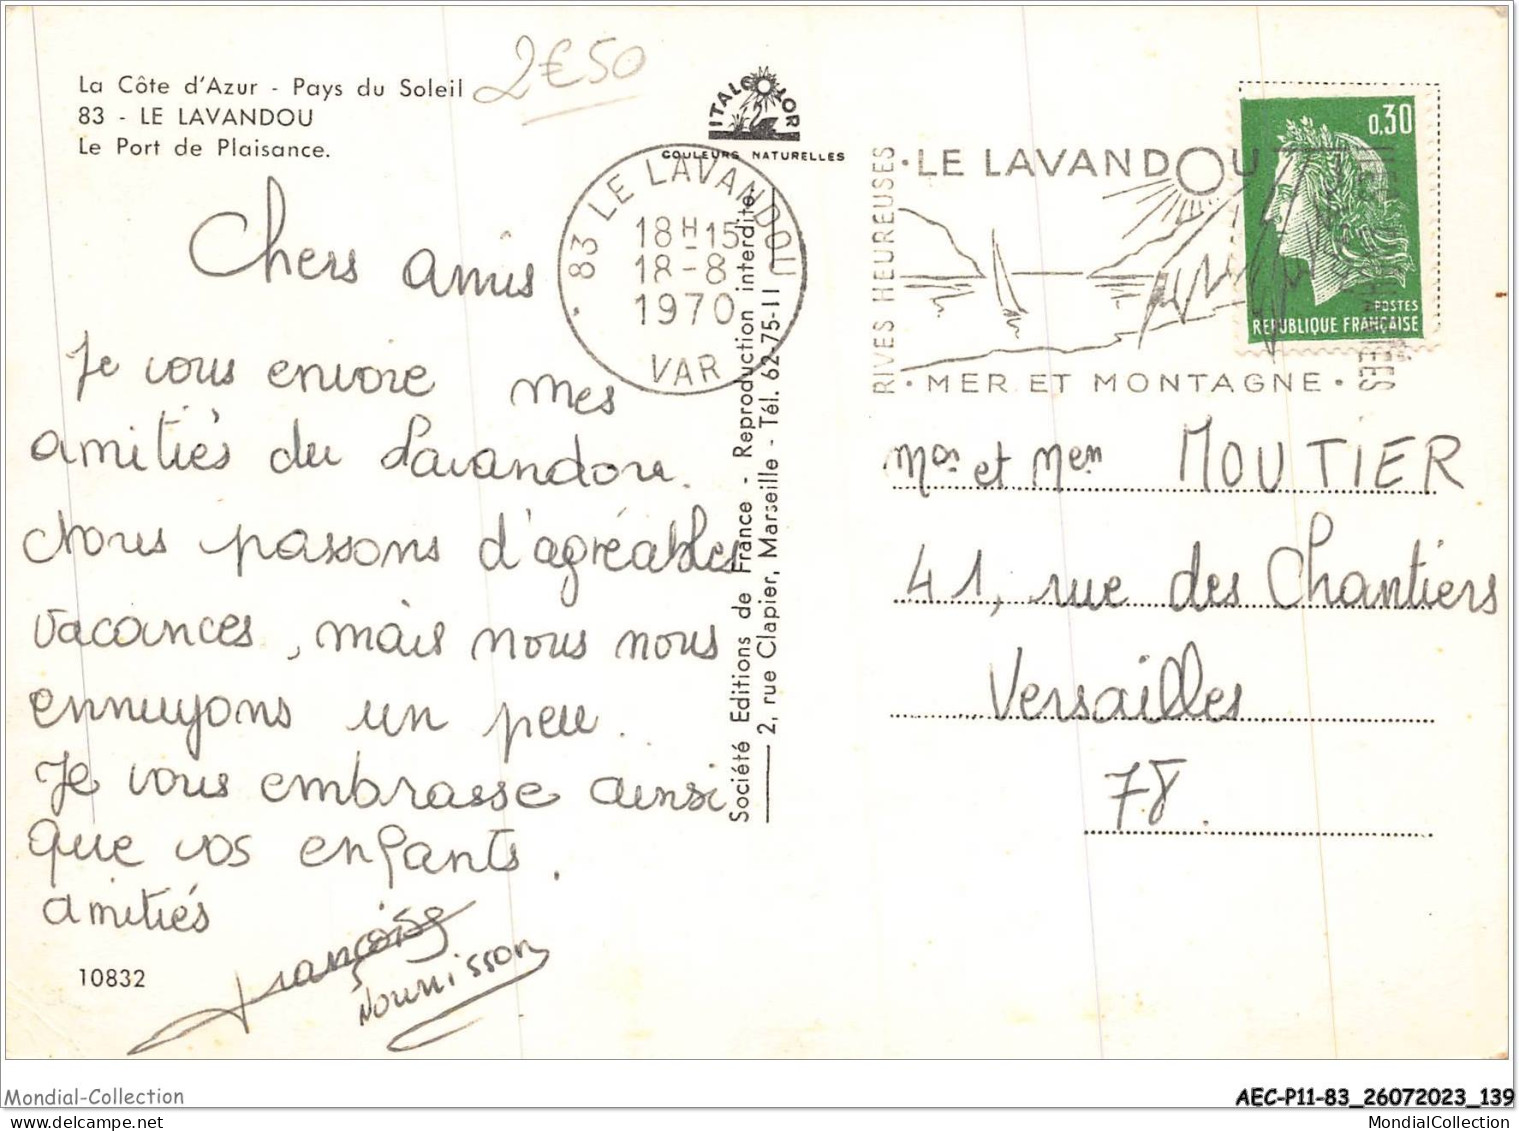 La Côte d'Azur - Pays du Soleil
83 - LE LAVANDOU
Le Port de Plaisance.
2€50
ITALCOLOR
COULEURS NATURELLES
83 LE LAVANDOU
18H15
18-8
1970
VAR
RIVES HEUREUSES
• LE LAVANDOU
• MER ET MONTAGNE •
0,30
POSTES
REPUBLIQUE FRANÇAISE
Chers amis
Je vous envoie mes
amitiés du Lavandou.
Nous passons d'agréables
vacances, mais nous nous
ennuyons un peu.
Je vous embrasse ainsi
que vos enfants.
amitiés
Françoise
Nourrisson
10832
Société Editions de France - Reproduction interdite
2, rue Clapier, Marseille - Tél. 62-75-11
et MOUTIER
41, rue des Chantiers
Versailles
78.
Mondial-Collection
AEC-P11-83_26072023_139
MondialCollection